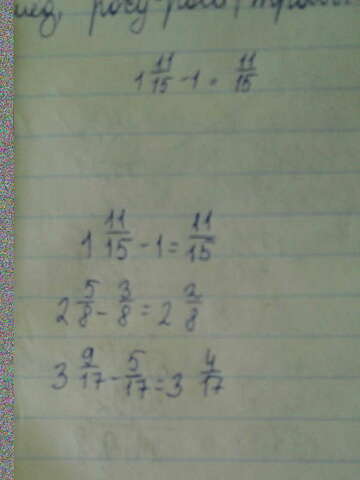 росу-роса
1 11/15 - 1 = 11/15
1 11/15 - 1 = 11/15
2 5/8 - 3/8 = 2 2/8
3 9/17 - 5/17 = 3 4/17